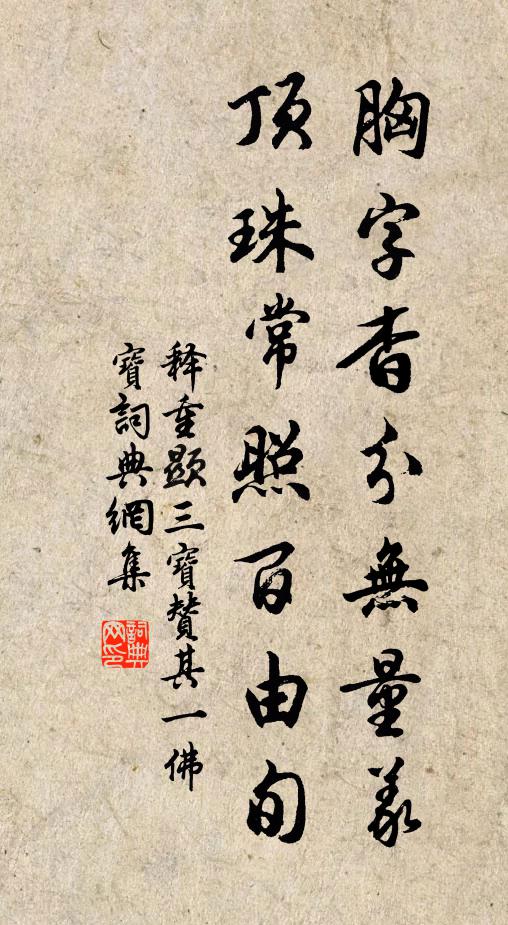 胸字杳分無量義
頂珠常照百由旬
釋重顯三寶贊其一佛
寶詞典網集
詞典網印